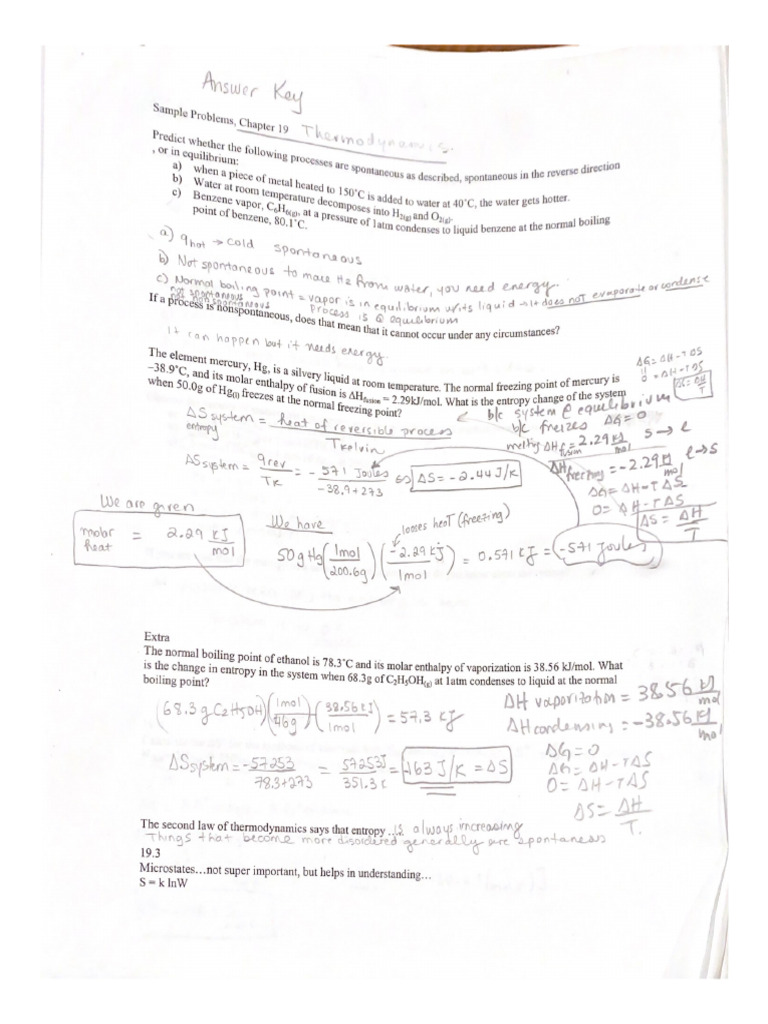 Answer Key
Sample Problems, Chapter 19 Thermodynamics.
Predict whether the following processes are spontaneous as described, spontaneous in the reverse direction
, or in equilibrium:
a) when a piece of metal heated to 150°C is added to water at 40°C, the water gets hotter.
b) Water at room temperature decomposes into H2(g) and O2(g).
c) Benzene vapor, C6H6(g), at a pressure of 1atm condenses to liquid benzene at the normal boiling
point of benzene, 80.1°C.
a) q hot → cold spontaneous
b) Not spontaneous to make H2 from water, you need energy.
c) Normal boiling point = vapor is in equilibrium w/its liquid → it does not evaporate or condense
not spontaneous process is @ equilibrium
not nonspontaneous
If a process is nonspontaneous, does that mean that it cannot occur under any circumstances?
It can happen but it needs energy
The element mercury, Hg, is a silvery liquid at room temperature. The normal freezing point of mercury is
−38.9°C, and its molar enthalpy of fusion is ΔHfusion = 2.29kJ/mol. What is the entropy change of the system
when 50.0g of Hg(l) freezes at the normal freezing point?
ΔG = ΔH - TΔS
0 = ΔH - TΔS
ΔS = ΔH
T
b/c system @ equilibrium
b/c freezes ΔG = 0
ΔS system = heat of reversible process
entropy T kelvin
melting ΔHf = 2.29 kJ S → l
fusion mol
ΔH freezing = -2.29 kJ l → S
mol
ΔS system = qrev = - 571 Joules ⇔ ΔS = - 2.44 J/K
TK -38.9+273
ΔG = ΔH - TΔS
0 = ΔH - TΔS
ΔS = ΔH
T
We are given
molar heat = 2.29 kJ
mol
We have
looses heat (freezing)
50 g Hg (1mol) (-2.29 kJ) = 0.571 kJ = -571 Joules
200.6g 1mol
Extra
The normal boiling point of ethanol is 78.3°C and its molar enthalpy of vaporization is 38.56 kJ/mol. What
is the change in entropy in the system when 68.3g of C2H5OH(g) at 1atm condenses to liquid at the normal
boiling point?
(68.3 g C2H5OH) (1mol) (38.56 kJ) = 57.3 kJ
46g 1mol
ΔH vaporization = 38.56 kJ
mol
ΔH condensing = -38.56 kJ
mol
ΔS system = -57253 = 57253J = -163 J/K = ΔS
78.3+273 351.3
ΔG = 0
ΔG = ΔH - TΔS
0 = ΔH - TΔS
ΔS = ΔH
T.
The second law of thermodynamics says that entropy ..is always increasing
Things that become more disordered generally are spontaness
19.3
Microstates…not super important, but helps in understanding…
S = k lnW